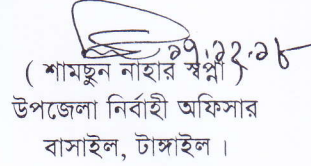 ০৭.১২.১৮
( শামছুন নাহার স্বপ্না )
উপজেলা নির্বাহী অফিসার
বাসাইল, টাঙ্গাইল ।